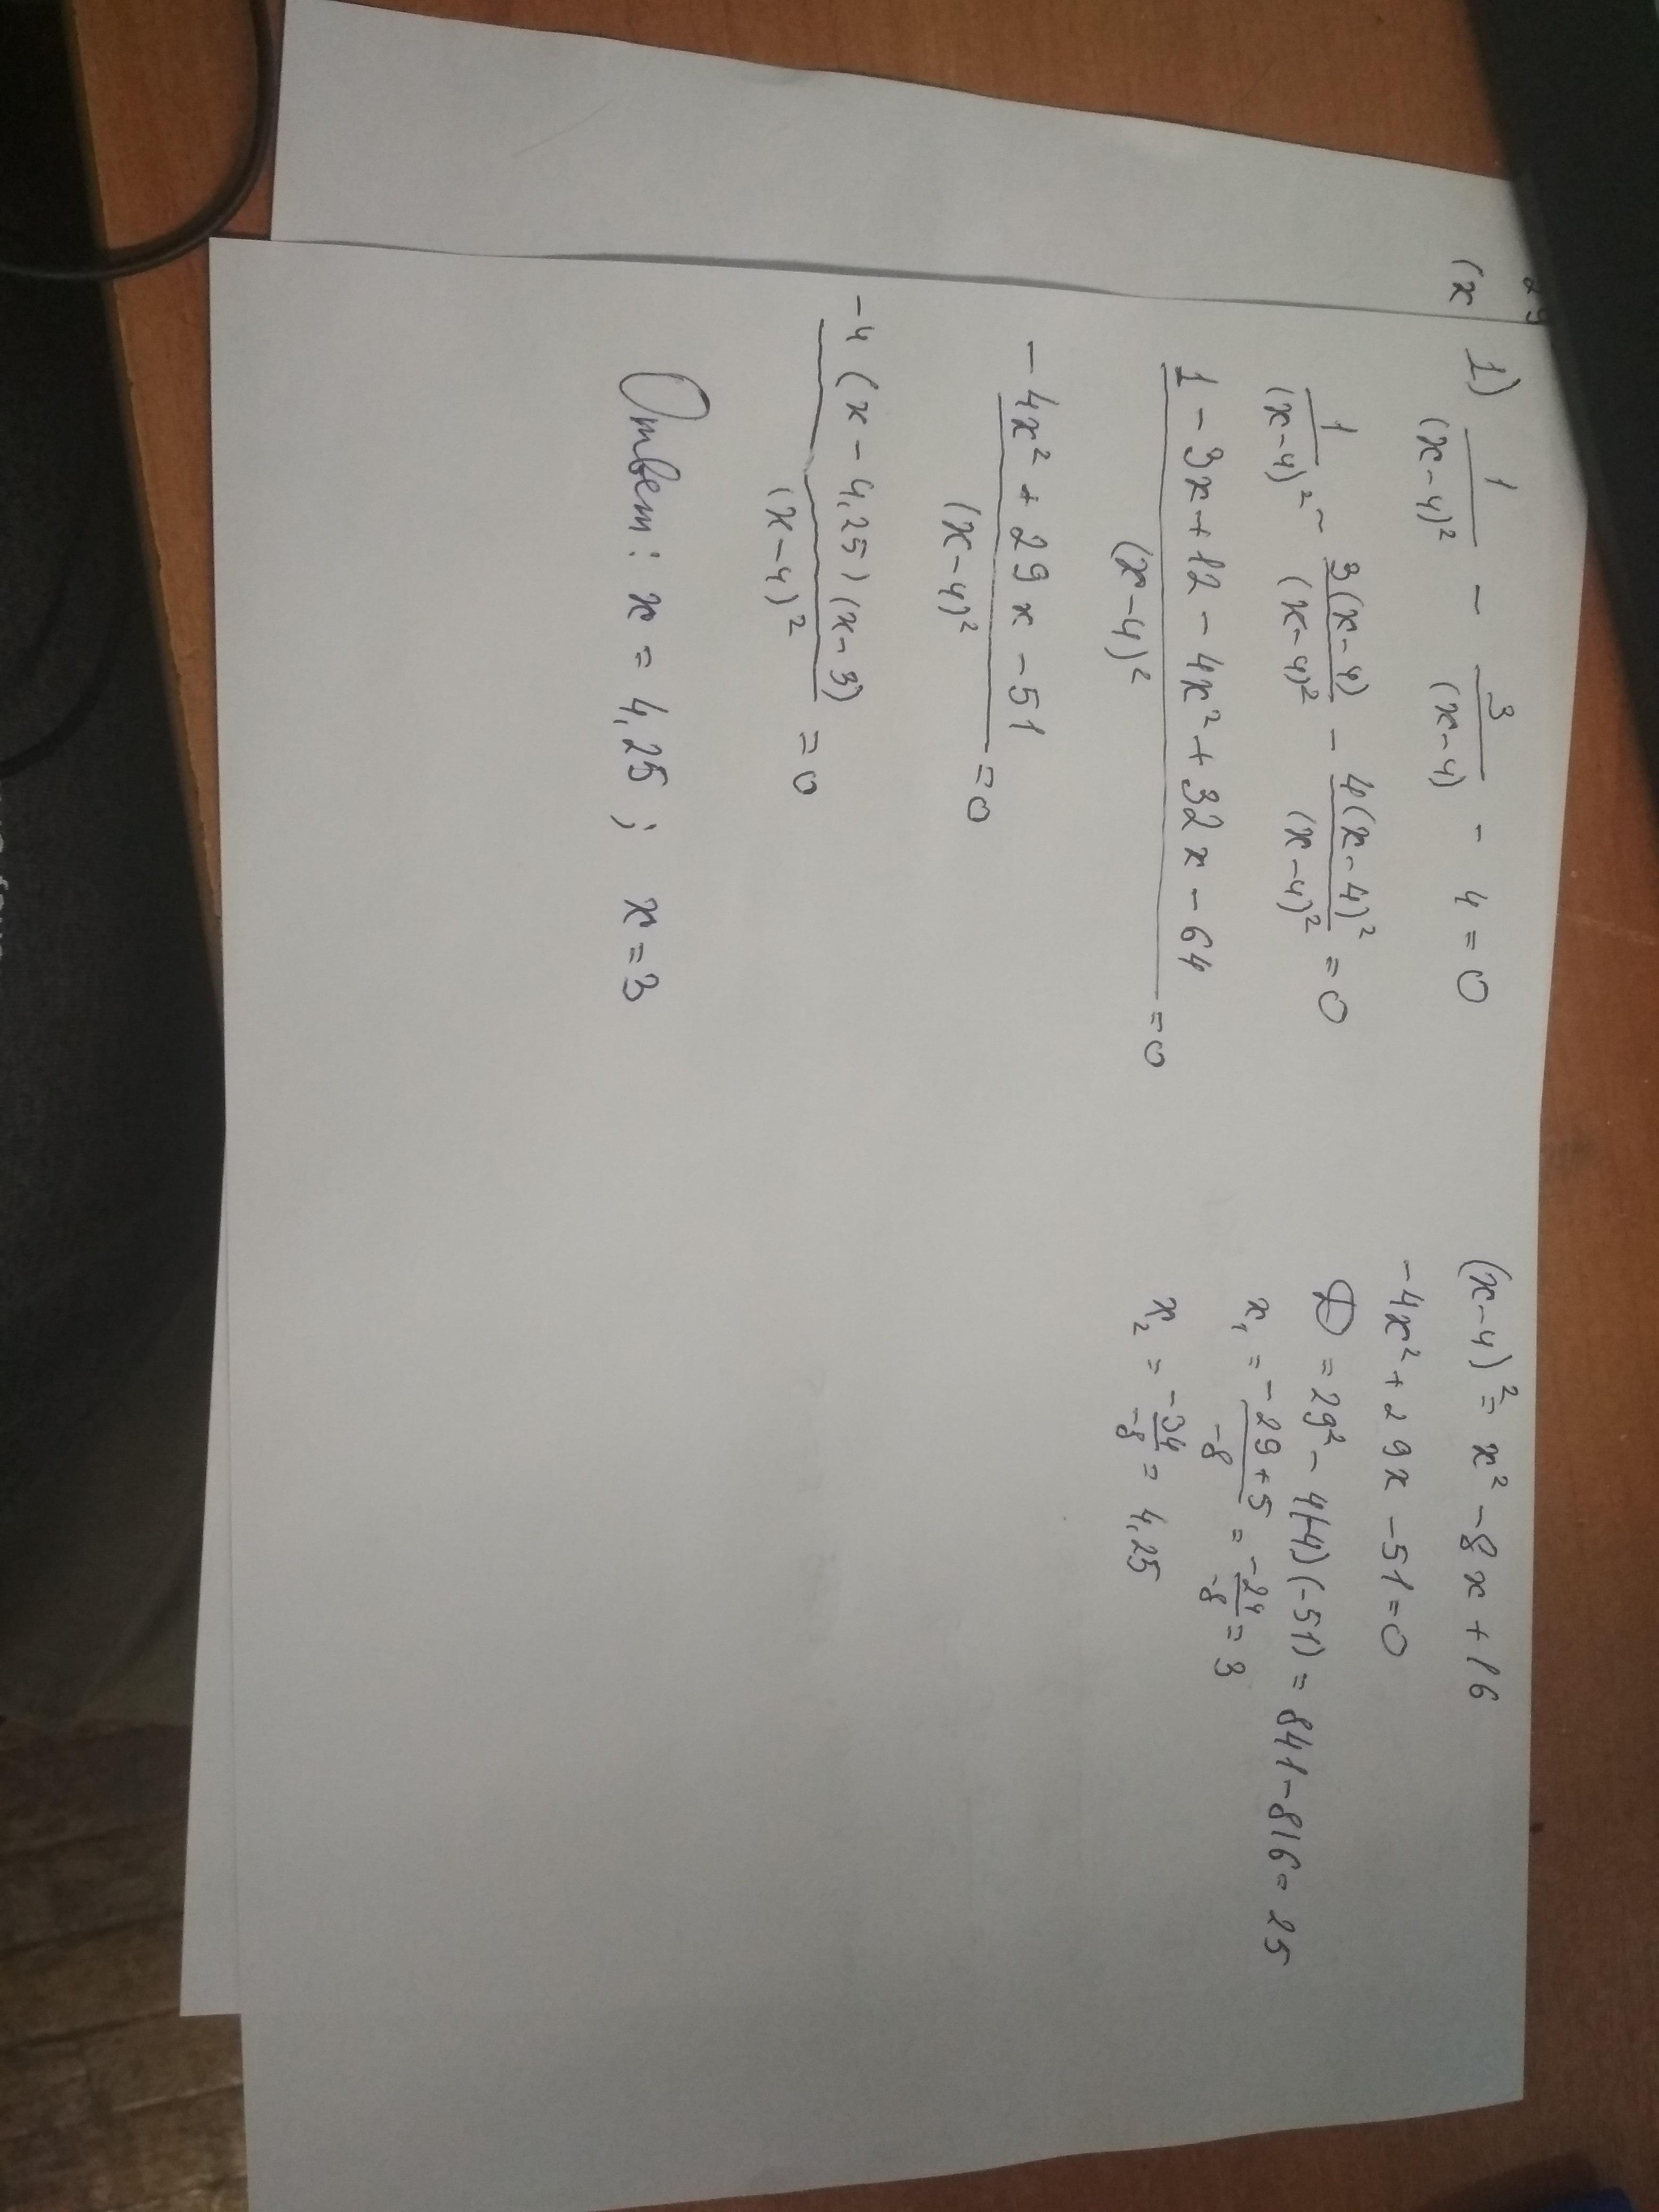 29
(x
1) 1/(x-4)² - 3/(x-4) - 4 = 0
1/(x-4)² - 3(x-4)/(x-4)² - 4(x-4)²/(x-4)² = 0
1 - 3x + 12 - 4x² + 32x - 64/(x-4)² = 0
-4x² + 29x - 51/(x-4)² = 0
-4(x - 4,25)(x-3)/(x-4)² = 0
Ответ: x = 4,25; x = 3
(x-4)² = x² - 8x + 16
-4x² + 29x - 51 = 0
D = 29² - 4(-4)(-51) = 841 - 816 = 25
x₁ = -29+5/-8 = -24/-8 = 3
x₂ = -34/-8 = 4,25